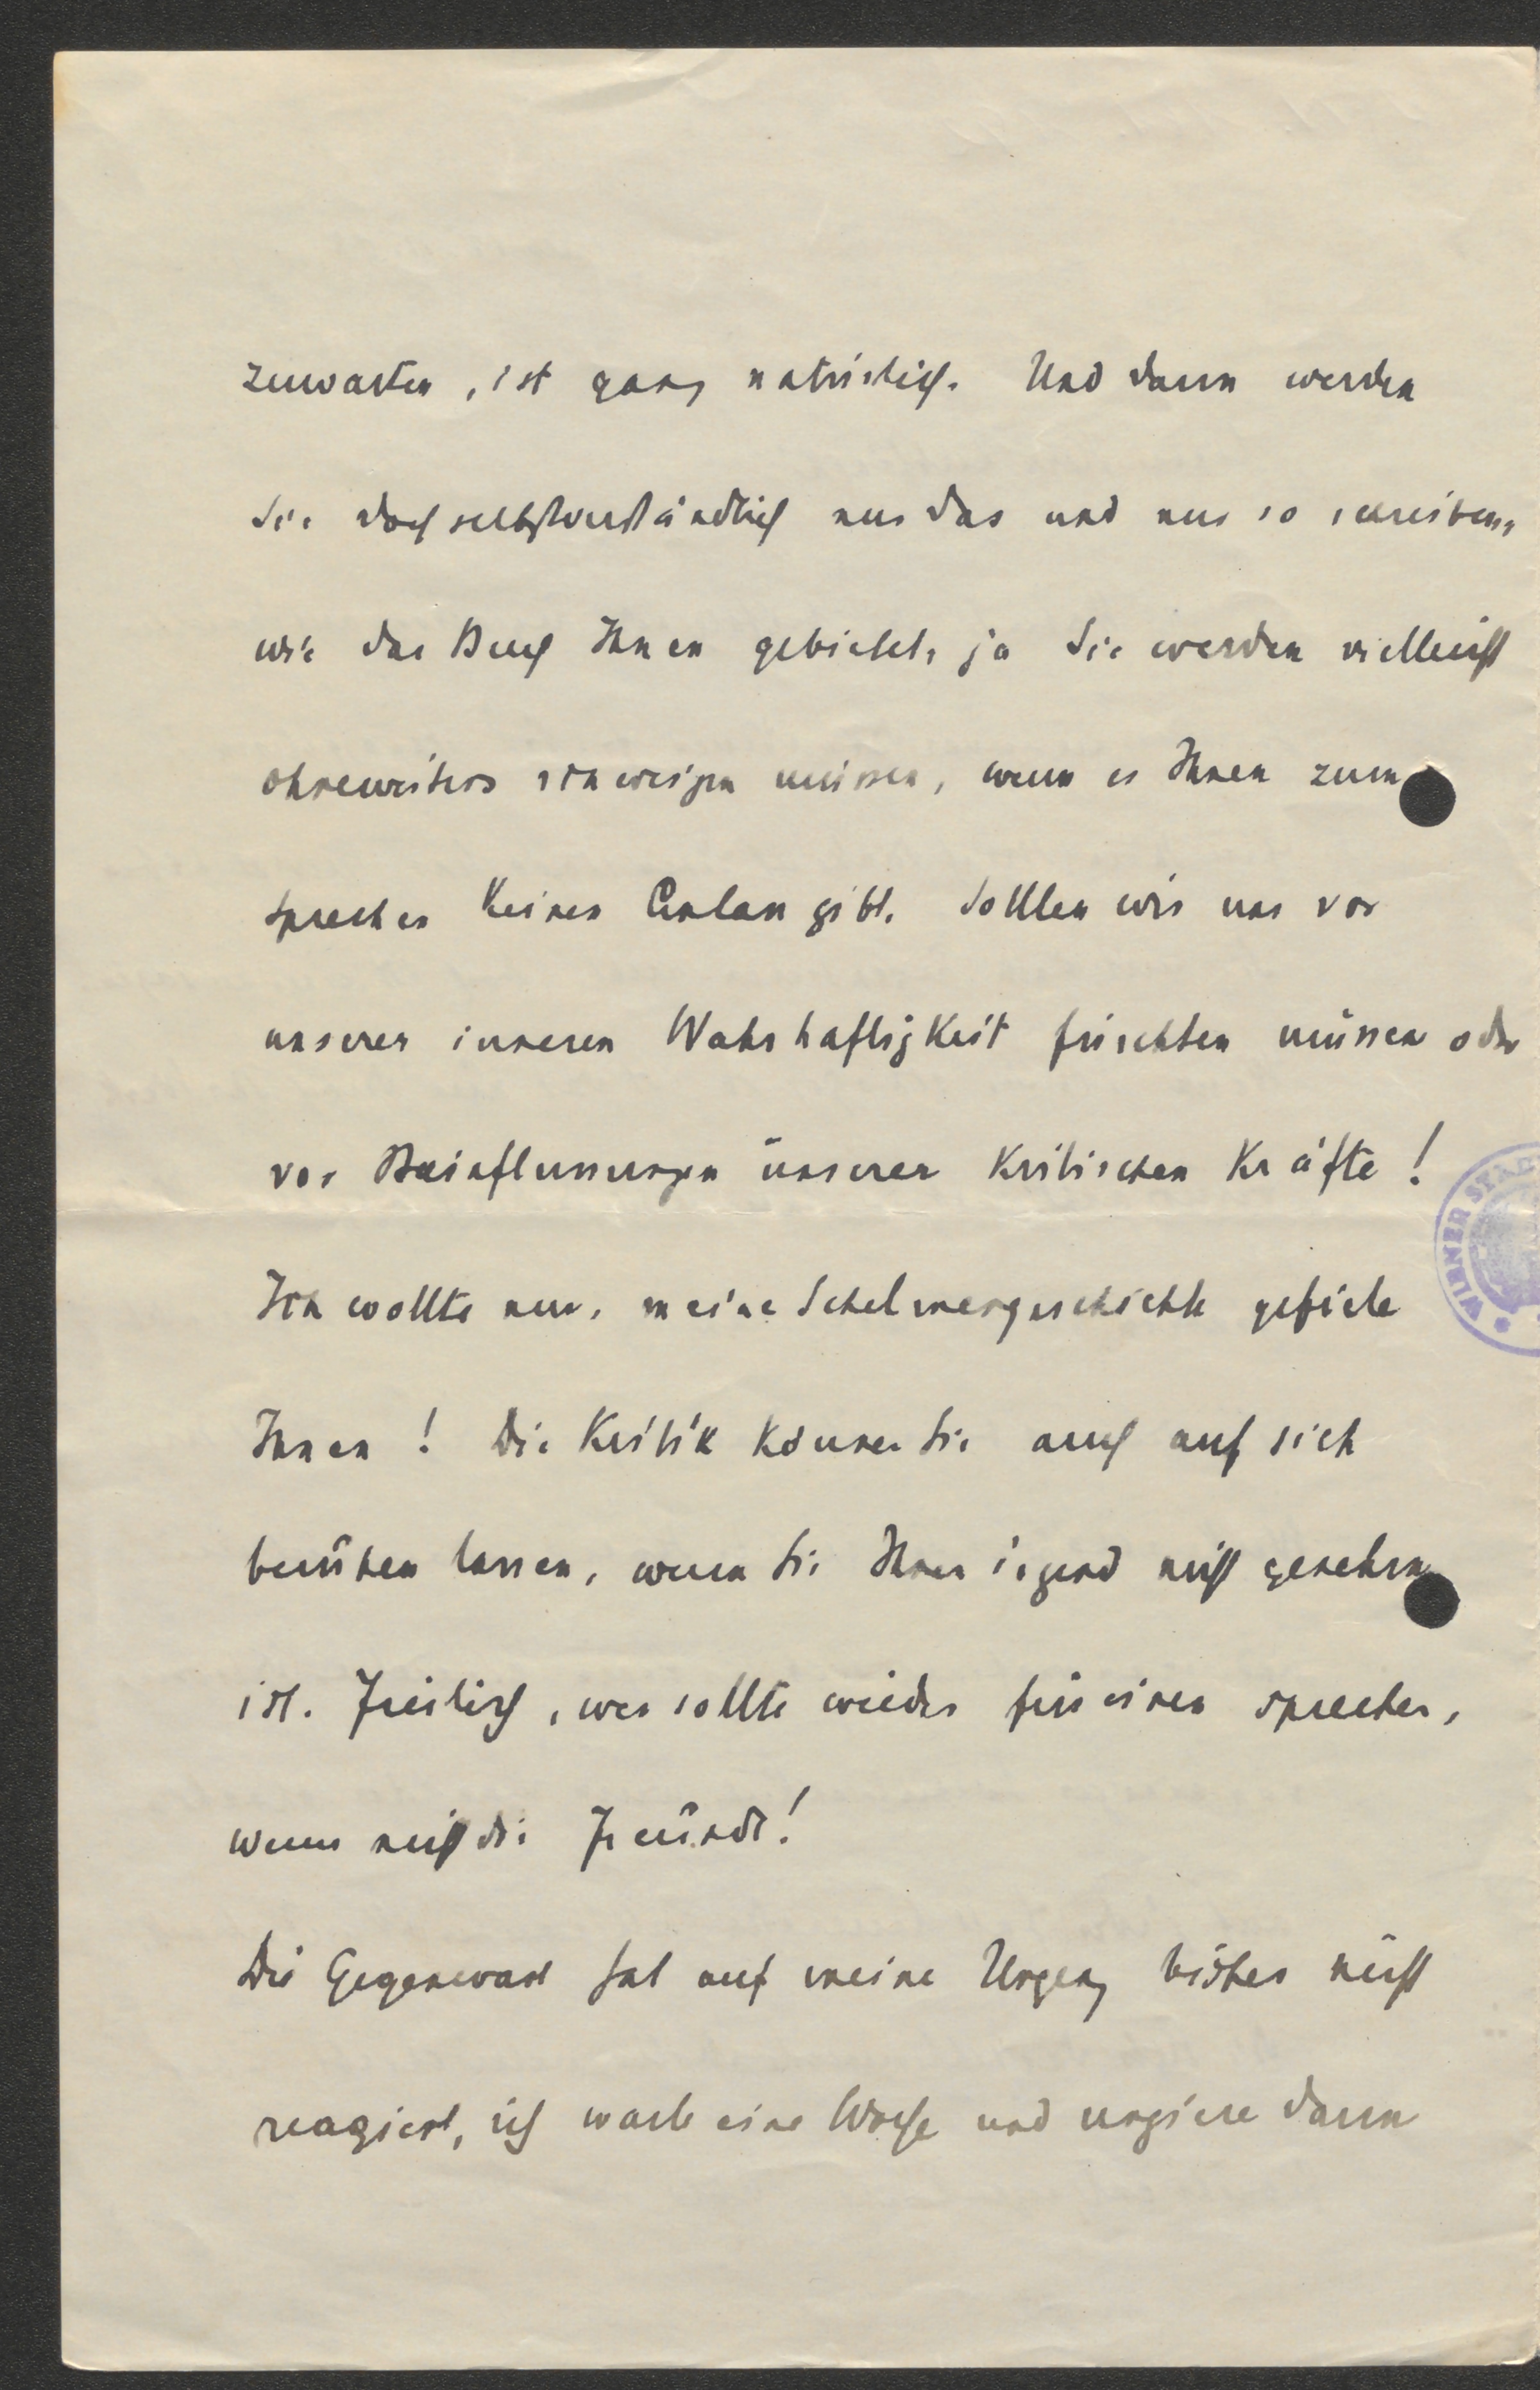 zuwarten, ist ganz natürlich. Und dann werden
Sie doch selbstverständlich nur das und nur so schreiben,
wie das Buch Ihnen gebietet, ja Sie werden vielleicht
ohneweiters schweigen müssen, wenn es Ihnen zum
Sprechen keinen Anlass gibt. Sollten wir uns vor
unserer inneren Wahrhaftigkeit fürchten müssen oder
vor Beinflussungen unserer kritischen Kräfte!
Ich wollte nur, meine Schelmengeschichte gefiele
Ihnen! Die Kritik können Sie auch auf sich
beruhen lassen, wenn Sie Ihnen irgend nicht genehm
ist. Freilich, wer sollte wieder für einen sprechen,
wenn nicht die Freunde!
Die Gegenwart hat auf meine Urgenz bisher nicht
reagiert, ich warte eine Woche und urgiere dann
WIENER STAD